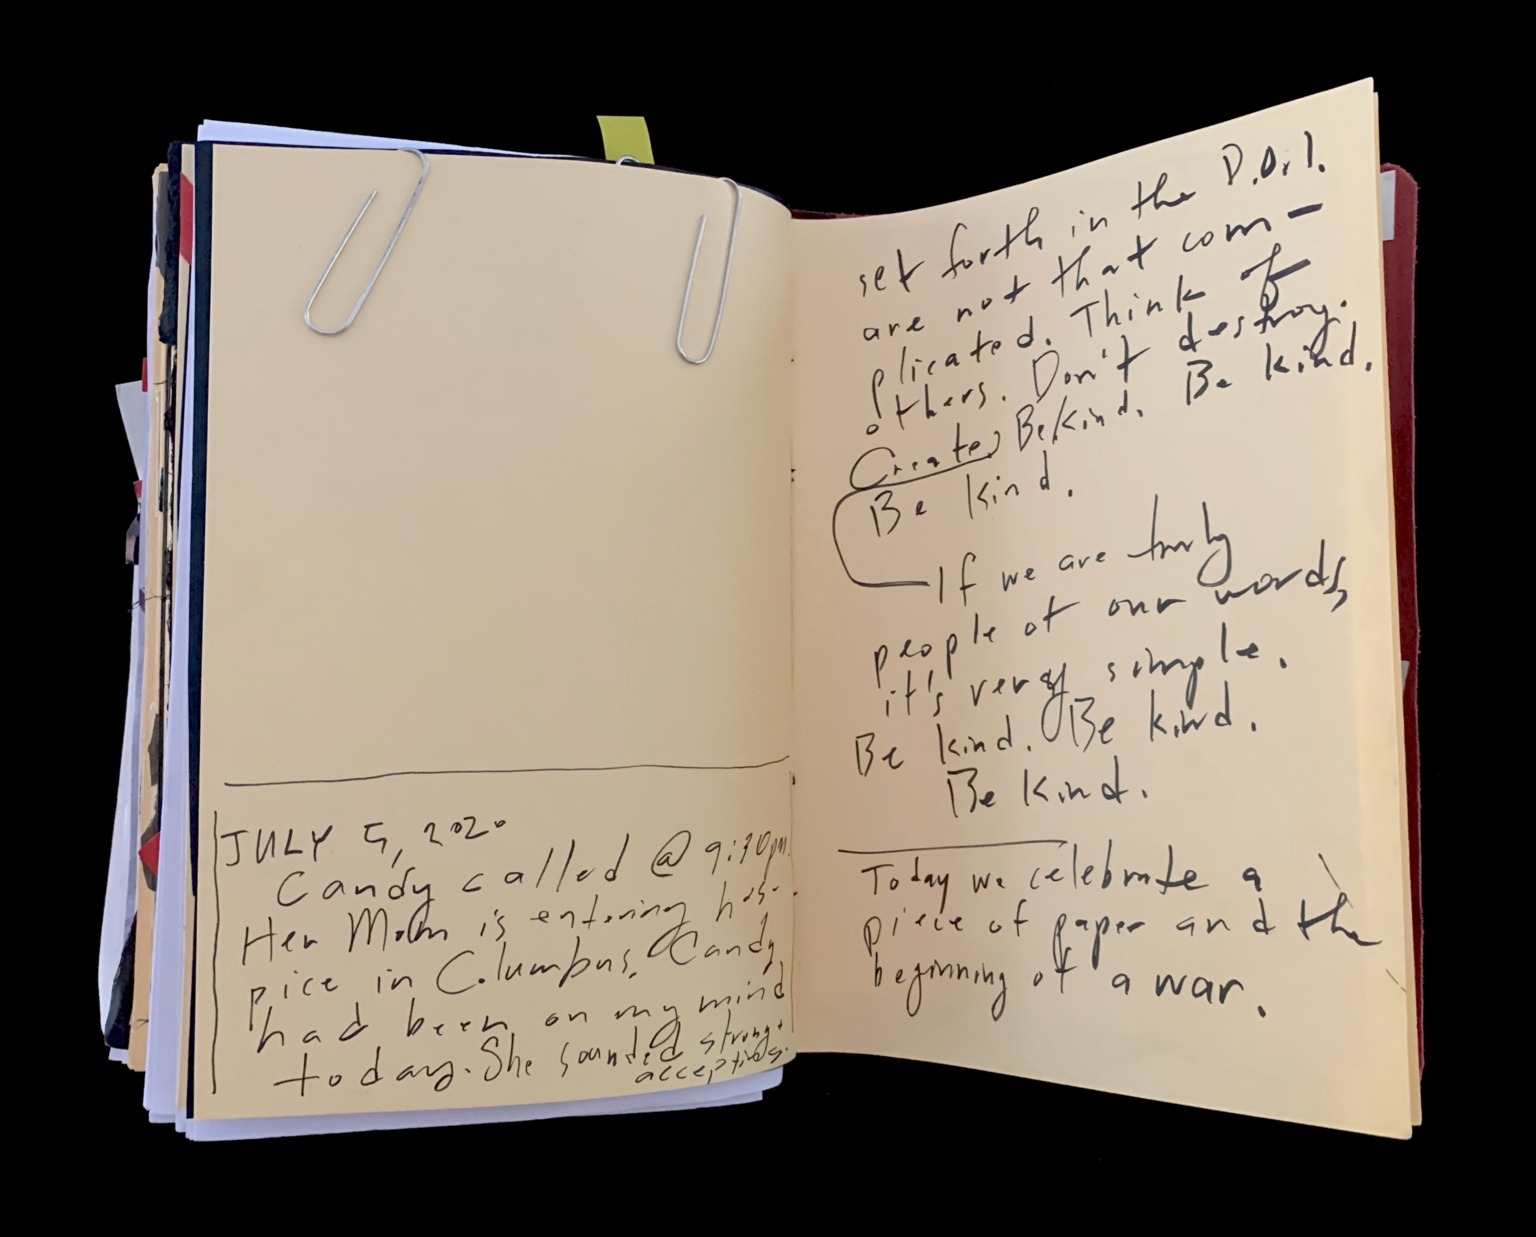 JULY 5, 2020
Candy called @ 9:30pm.
Her Mom is entering hos-
pice in Columbus. Candy
had been on my mind
today. She sounded strong +
accepting.
set forth in the D.O.I.
are not that com-
plicated. Think of
others. Don't destroy.
Create, Be kind. Be kind.
Be kind.
If we are truly
people of our words,
it's very simple.
Be kind. Be kind.
Be kind.
Today we celebrate a
piece of paper and the
beginning of a war.